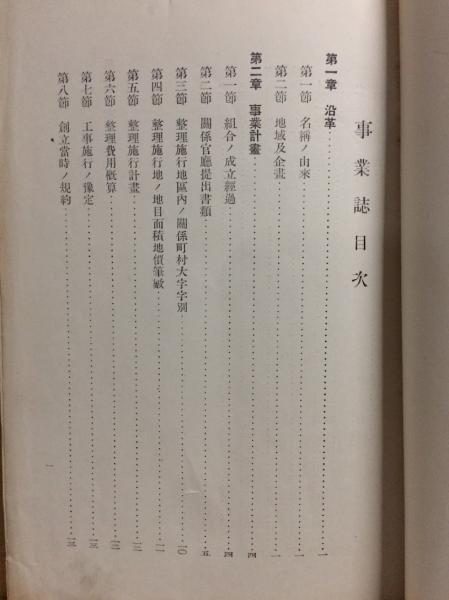 事業誌目次
第一章 沿革…………一
第一節 名稱ノ由來…………一
第二節 地域及企畫…………一
第二章 事業計畫…………四
第一節 組合ノ成立經過…………四
第二節 關係官廳提出書類…………五
第三節 整理施行地區內ノ關係町村大字字別…………一〇
第四節 整理施行地ノ地目面積地價筆數…………一一
第五節 整理施行計畫…………一二
第六節 整理費用概算…………一三
第七節 工事施行ノ豫定…………一三
第八節 創立當時ノ規約…………一三